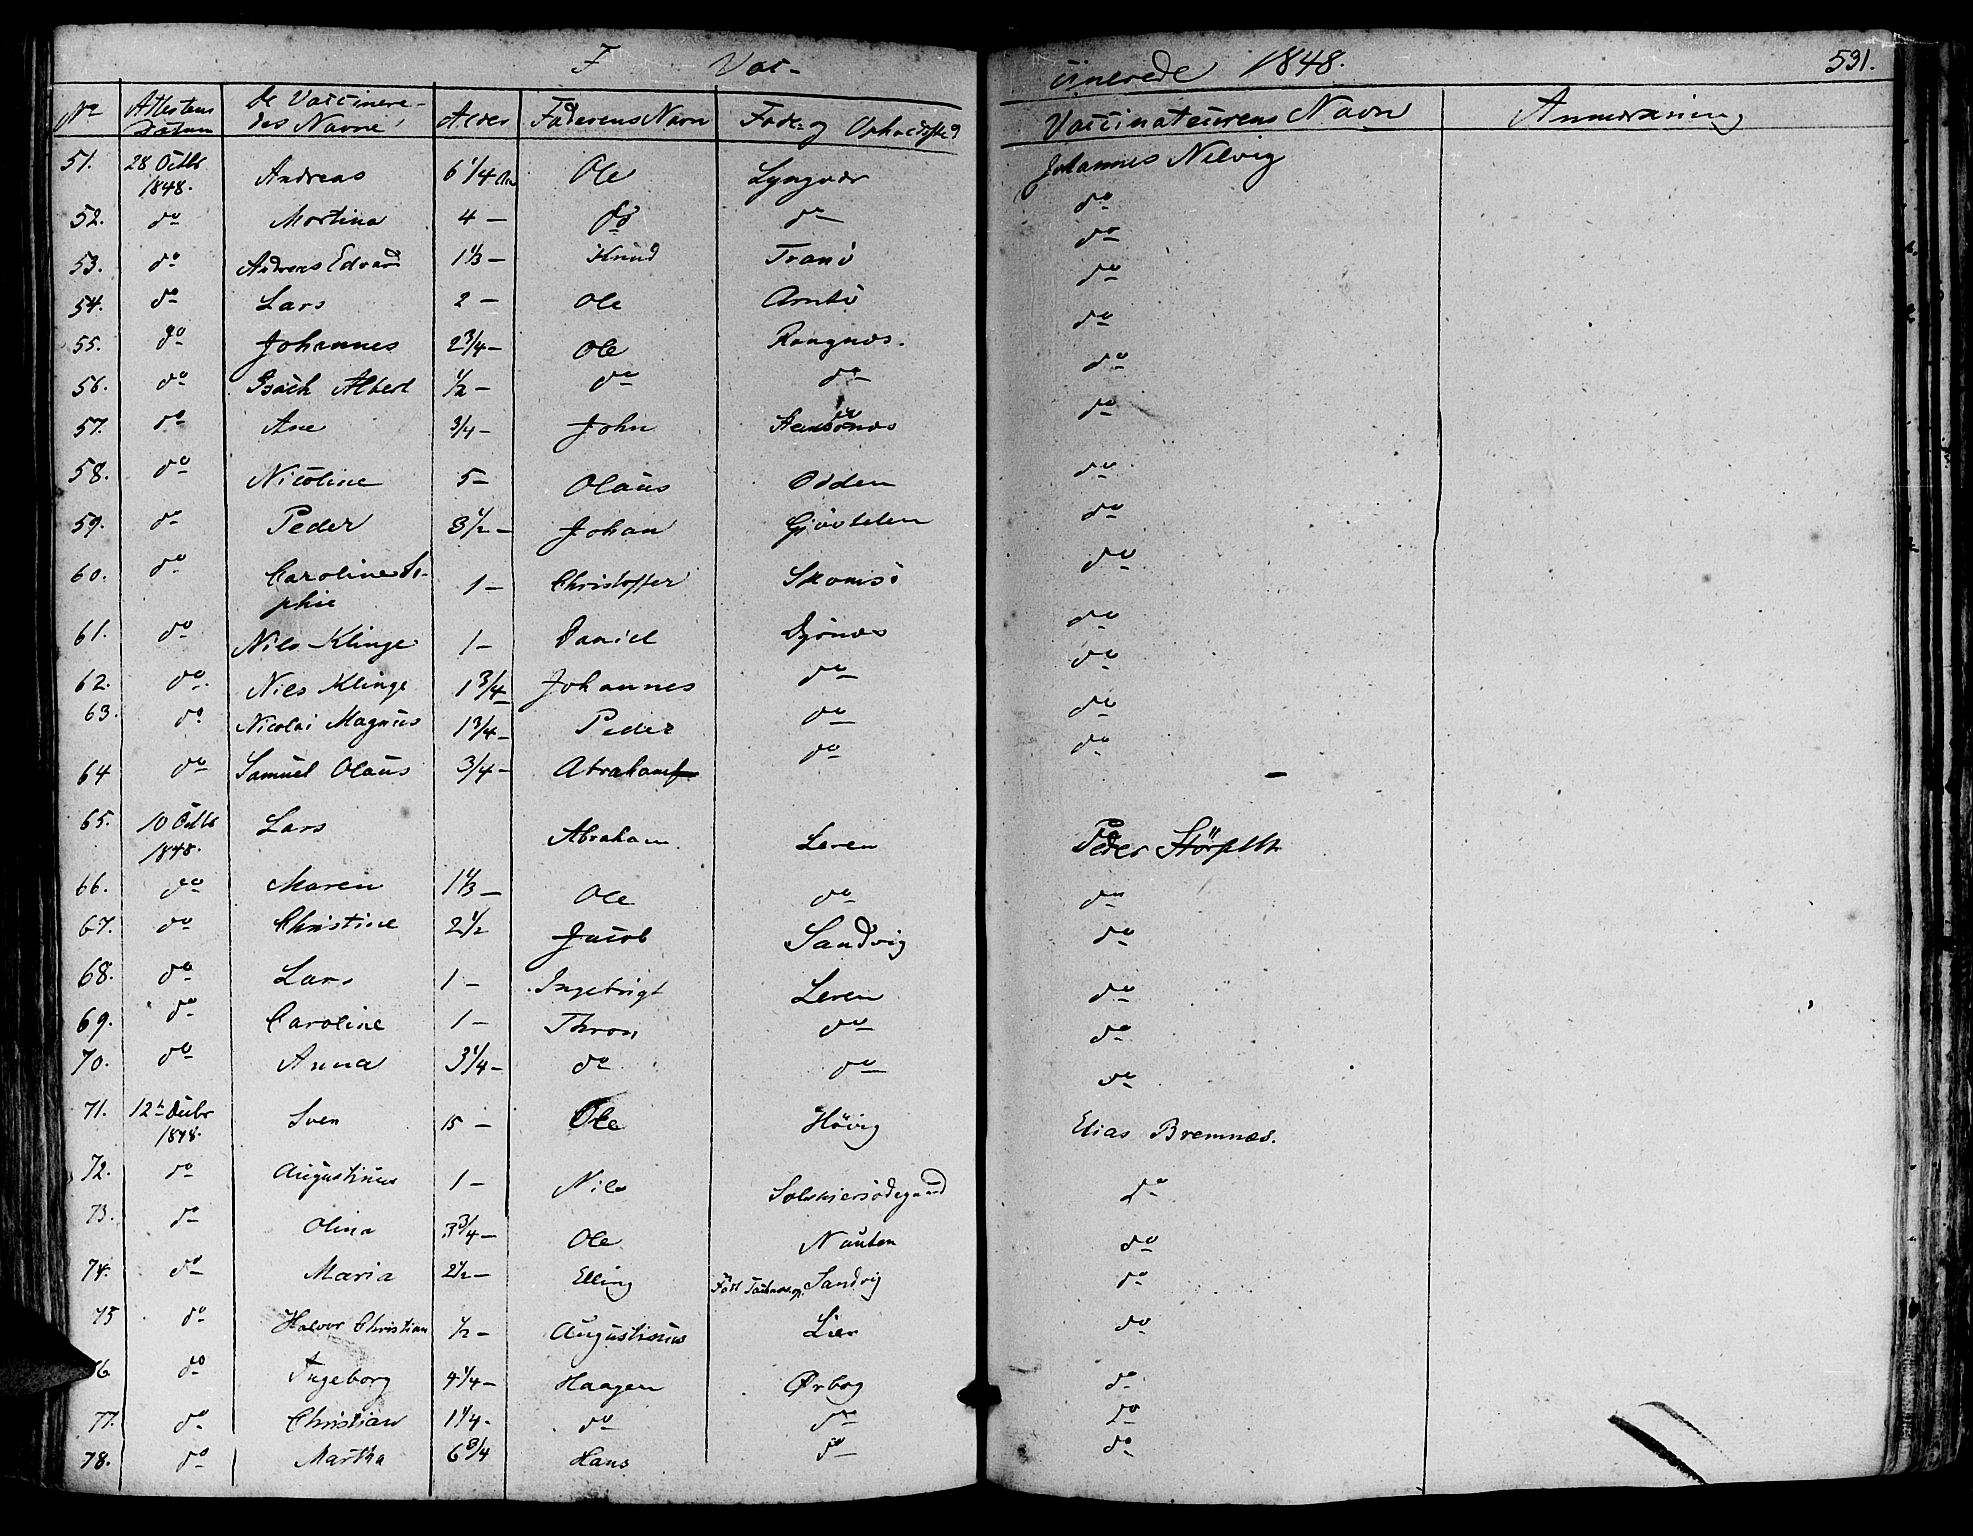 F Vac- cinerede 1848. 531.
No Attestens Datum De Vaccinere- des Navne Alder Faderens Navn Føde og Opholdssted Vaccinateurens Navn Anmærkning
51. 28 Octbr 1848. Andreas 6 1/4 Ole Lyngvær Johannes Nelvig
52. do Martina 4 - do do do
53. do Andreas Edvard 1 1/3 - Knud Tranö do
54. do Lars 2 - Ole Arntö do
55. do Johannes 2 3/4 - Ole Rangnæs. do
56. do Isach Albert 1/2 - do do do
57. do Ane 3/4 - John do
58. do Nicoline 5 - Olaus Odden do
59. do Peder 3 1/2 - Johan do
60. do Caroline So- phie 1 - Christoffer Skomsö do
61. do Nils Klinge 1 - Daniel do
62. do Nils Klinge 1 3/4 Johannes do do
63. do Nicolai Magnus 1 3/4 - Peder do do
64 do Samuel Olaus 3/4 - Abraham do do
65. 10 Octbr 1848. Lars Abraham. Leren Peder
66. do Maren 1 1/3 - Ole do do
67. do Christine 2 1/2 Jacob Sandvig do
68. do Lars 1 - Ingebrigt Leren do
69. do Caroline 1 - Thron do do
70. do Anna 3 1/4 - do do do
71. 12 1848. Sven 15 - Ole Høvig Elias Bremnæs.
72. do Augustinus 1 - Nils Solskiersödegaard do
73. do Olina 3 3/4 - Ole Nauten do
74. do Maria 2 1/2 - Elling Sandvig do
75 do Halvor Christian 1/2 - Augustinus Lier do
76. do Ingeborg 4 1/4 - Haagen Ørbog do
77. do Christian 1 1/4 - do do do
78. do Martha 6 3/4 Hans do do